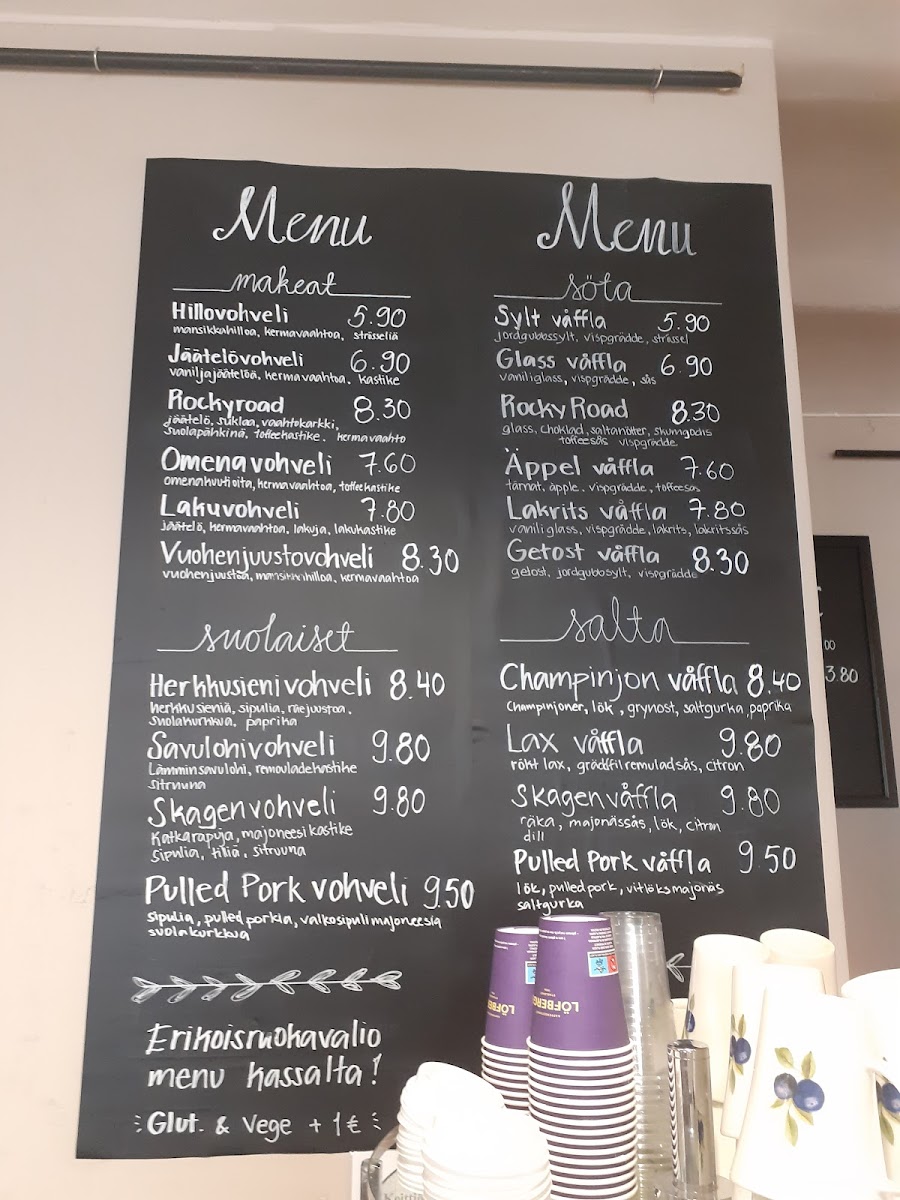 Menu
makeat
Hillovohveli 5.90
mansikkahilloa, kermavaahtoa, strösseliä
Jäätelövohveli 6.90
vaniljajäätelöä, kermavaahtoa, kastike
Rockyroad 8.30
jäätelö, suklaa, vaahtokarkki,
suolapähkinä, toffeekastike, kermavaahto
Omenavohveli 7.60
omenakuutioita, kermavaahtoa, toffeekastike
Lakuvohveli 7.80
jäätelö, kermavaahtoa, lakuja, lakukastike
Vuohenjuustovohveli 8.30
vuohenjuustoa, mansikkahilloa, kermavaahtoa
suolaiset
Herkkusienivohveli 8.40
herkkusieniä, sipulia, raejuustoa,
suolakurkkua, paprika
Savulohivohveli 9.80
Lämminsavulohi, remouladekastike
sitruuna
Skagenvohveli 9.80
Katkarapuja, majoneesikastike
Sipulia, tilliä, sitruuna
Pulled Pork vohveli 9.50
sipulia, pulled porkia, valkosipulimajoneesia
suolakurkkua
Erikoisruokavalio
menu kassalta!
Glut. & Vege + 1€
Menu
söta
Sylt våffla 5.90
jordgubbssylt, vispgrädde, strössel
Glass våffla 6.90
vaniliglass, vispgrädde, sås
Rocky Road 8.30
glass, choklad, saltanötter, skumgodis
toffeesås vispgrädde
Äppel våffla 7.60
tärnat, äpple, vispgrädde, toffeesås
Lakrits våffla 7.80
vanili glass, vispgrädde, lakrits, lakritssås
Getost våffla 8.30
getost, jordgubbsylt, vispgrädde
salta
Champinjon våffla 8.40
Champinjoner, lök, grynost, saltgurka, paprika
Lax våffla 9.80
rökt lax, gräddfilremuladsås, citron
Skagenvåffla 9.80
räka, majonässås, lök, citron
dill
Pulled Pork våffla 9.50
lök, pulled pork, vitlöksmajonäs
saltgurka
00
3.80
LÖFBERG
LÖFBERG